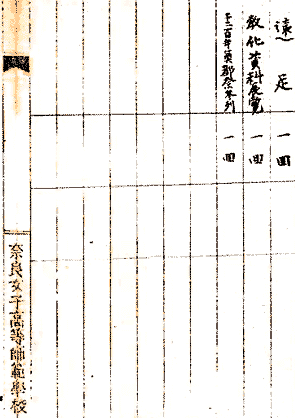 遠足 一回
教化資料展覧 一回
二百年 祭 列 一回
奈良女子高等師範學校